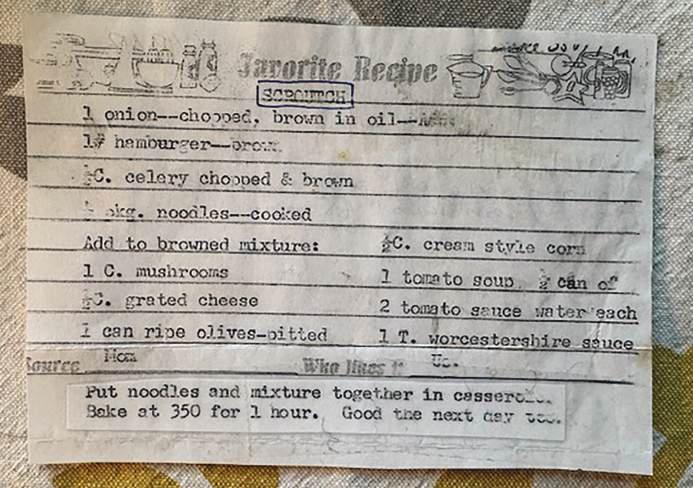 Favorite Recipe
SCROUTCH
1 onion--chopped, brown in oil--
1# hamburger--brown
½C. celery chopped & brown
pkg. noodles--cooked
Add to browned mixture:
½C. cream style corn
1 C. mushrooms
1 tomato soup ½ can of
½C. grated cheese
2 tomato sauce water each
1 can ripe olives-pitted
1 T. worcestershire sauce
Source Mom Who likes it Us.
Put noodles and mixture together in casserole.
Bake at 350 for 1 hour. Good the next day too.